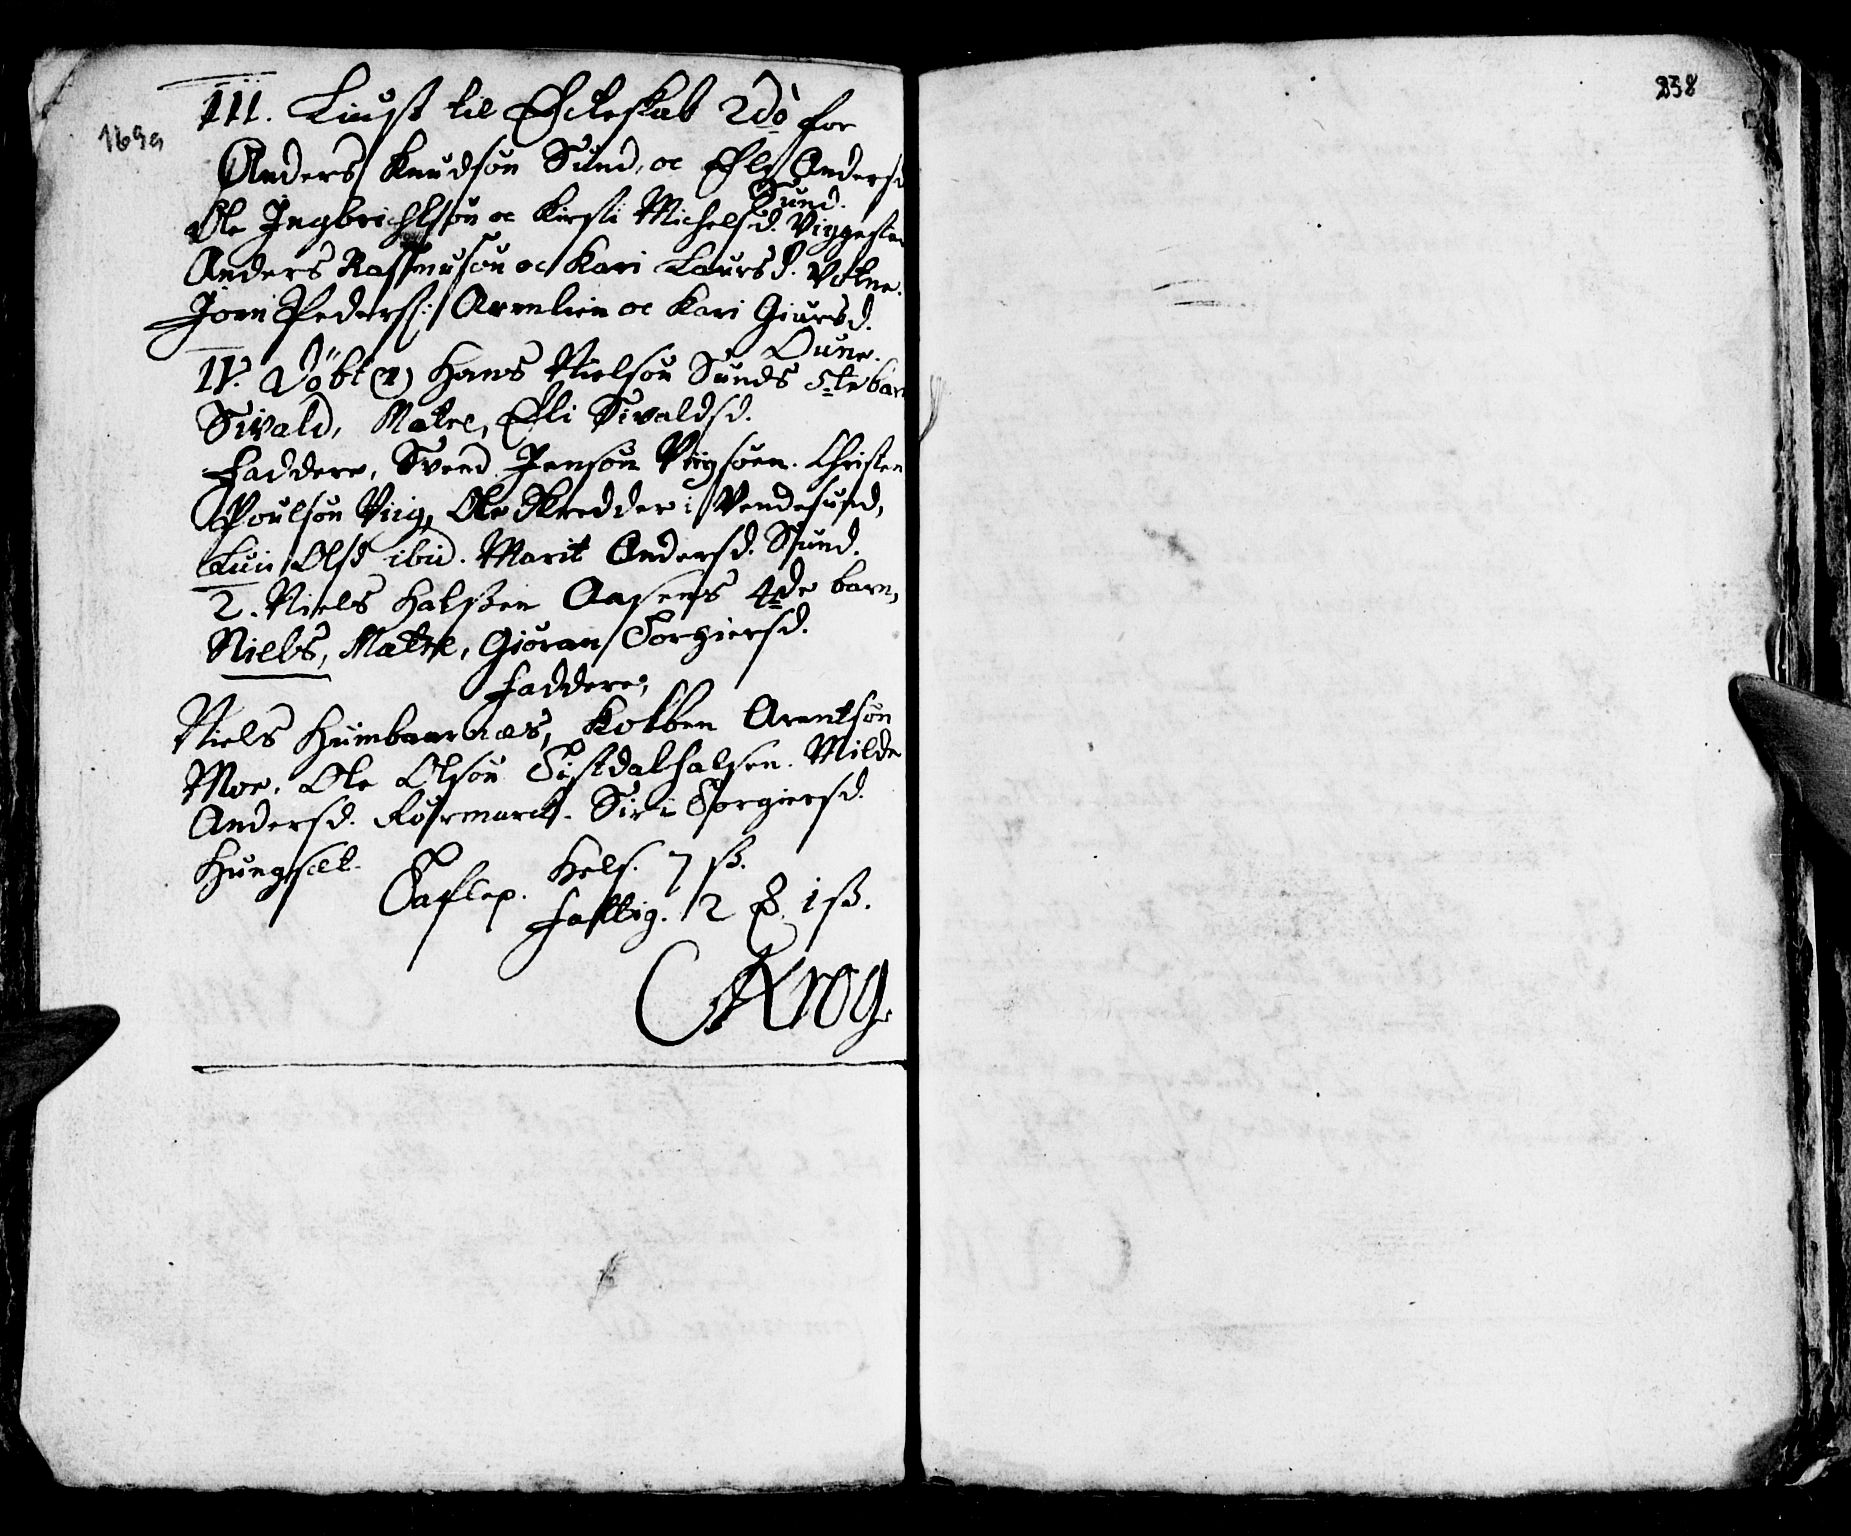 1699
III. Liust til Ecteskab 2dò for
Anders Knudsøn Sund, oc Eli Andersd
Sund.
Ole Ingbrichtsøn oc Kirsti Michelsd. Viggesta
Anders Rassmusøn oc Kari Laursd. Votne.
Joen Peders: Aremlien oc Kari Giursd.
Oune.
IV. Döbt (1) Hans Nielsøn Sunds 5te barn
Sivald, Matre, Eli Sivaldsd.
Faddere, Svend Jensøn Viigsøen. Christen
Poulsøn Viig, Ole Skredder i Vendesund,
Olsd ibid. Marit Andersd. Sund.
2. Niels Halssen Aasens 4de barn,
Niels, Matre, Giøran Torgiersd.
Faddere,
Niels Humbaarnæs, Kolben Arentsøn
Moe. Ole Olsøn Tistdalhalsen. Milde
Andersd. Rosrmarck. Siri Torgiersd.
Hungsæt.
Taflep. Hels. 7 ß.
Fattig. 2 ß.
Krog.
258